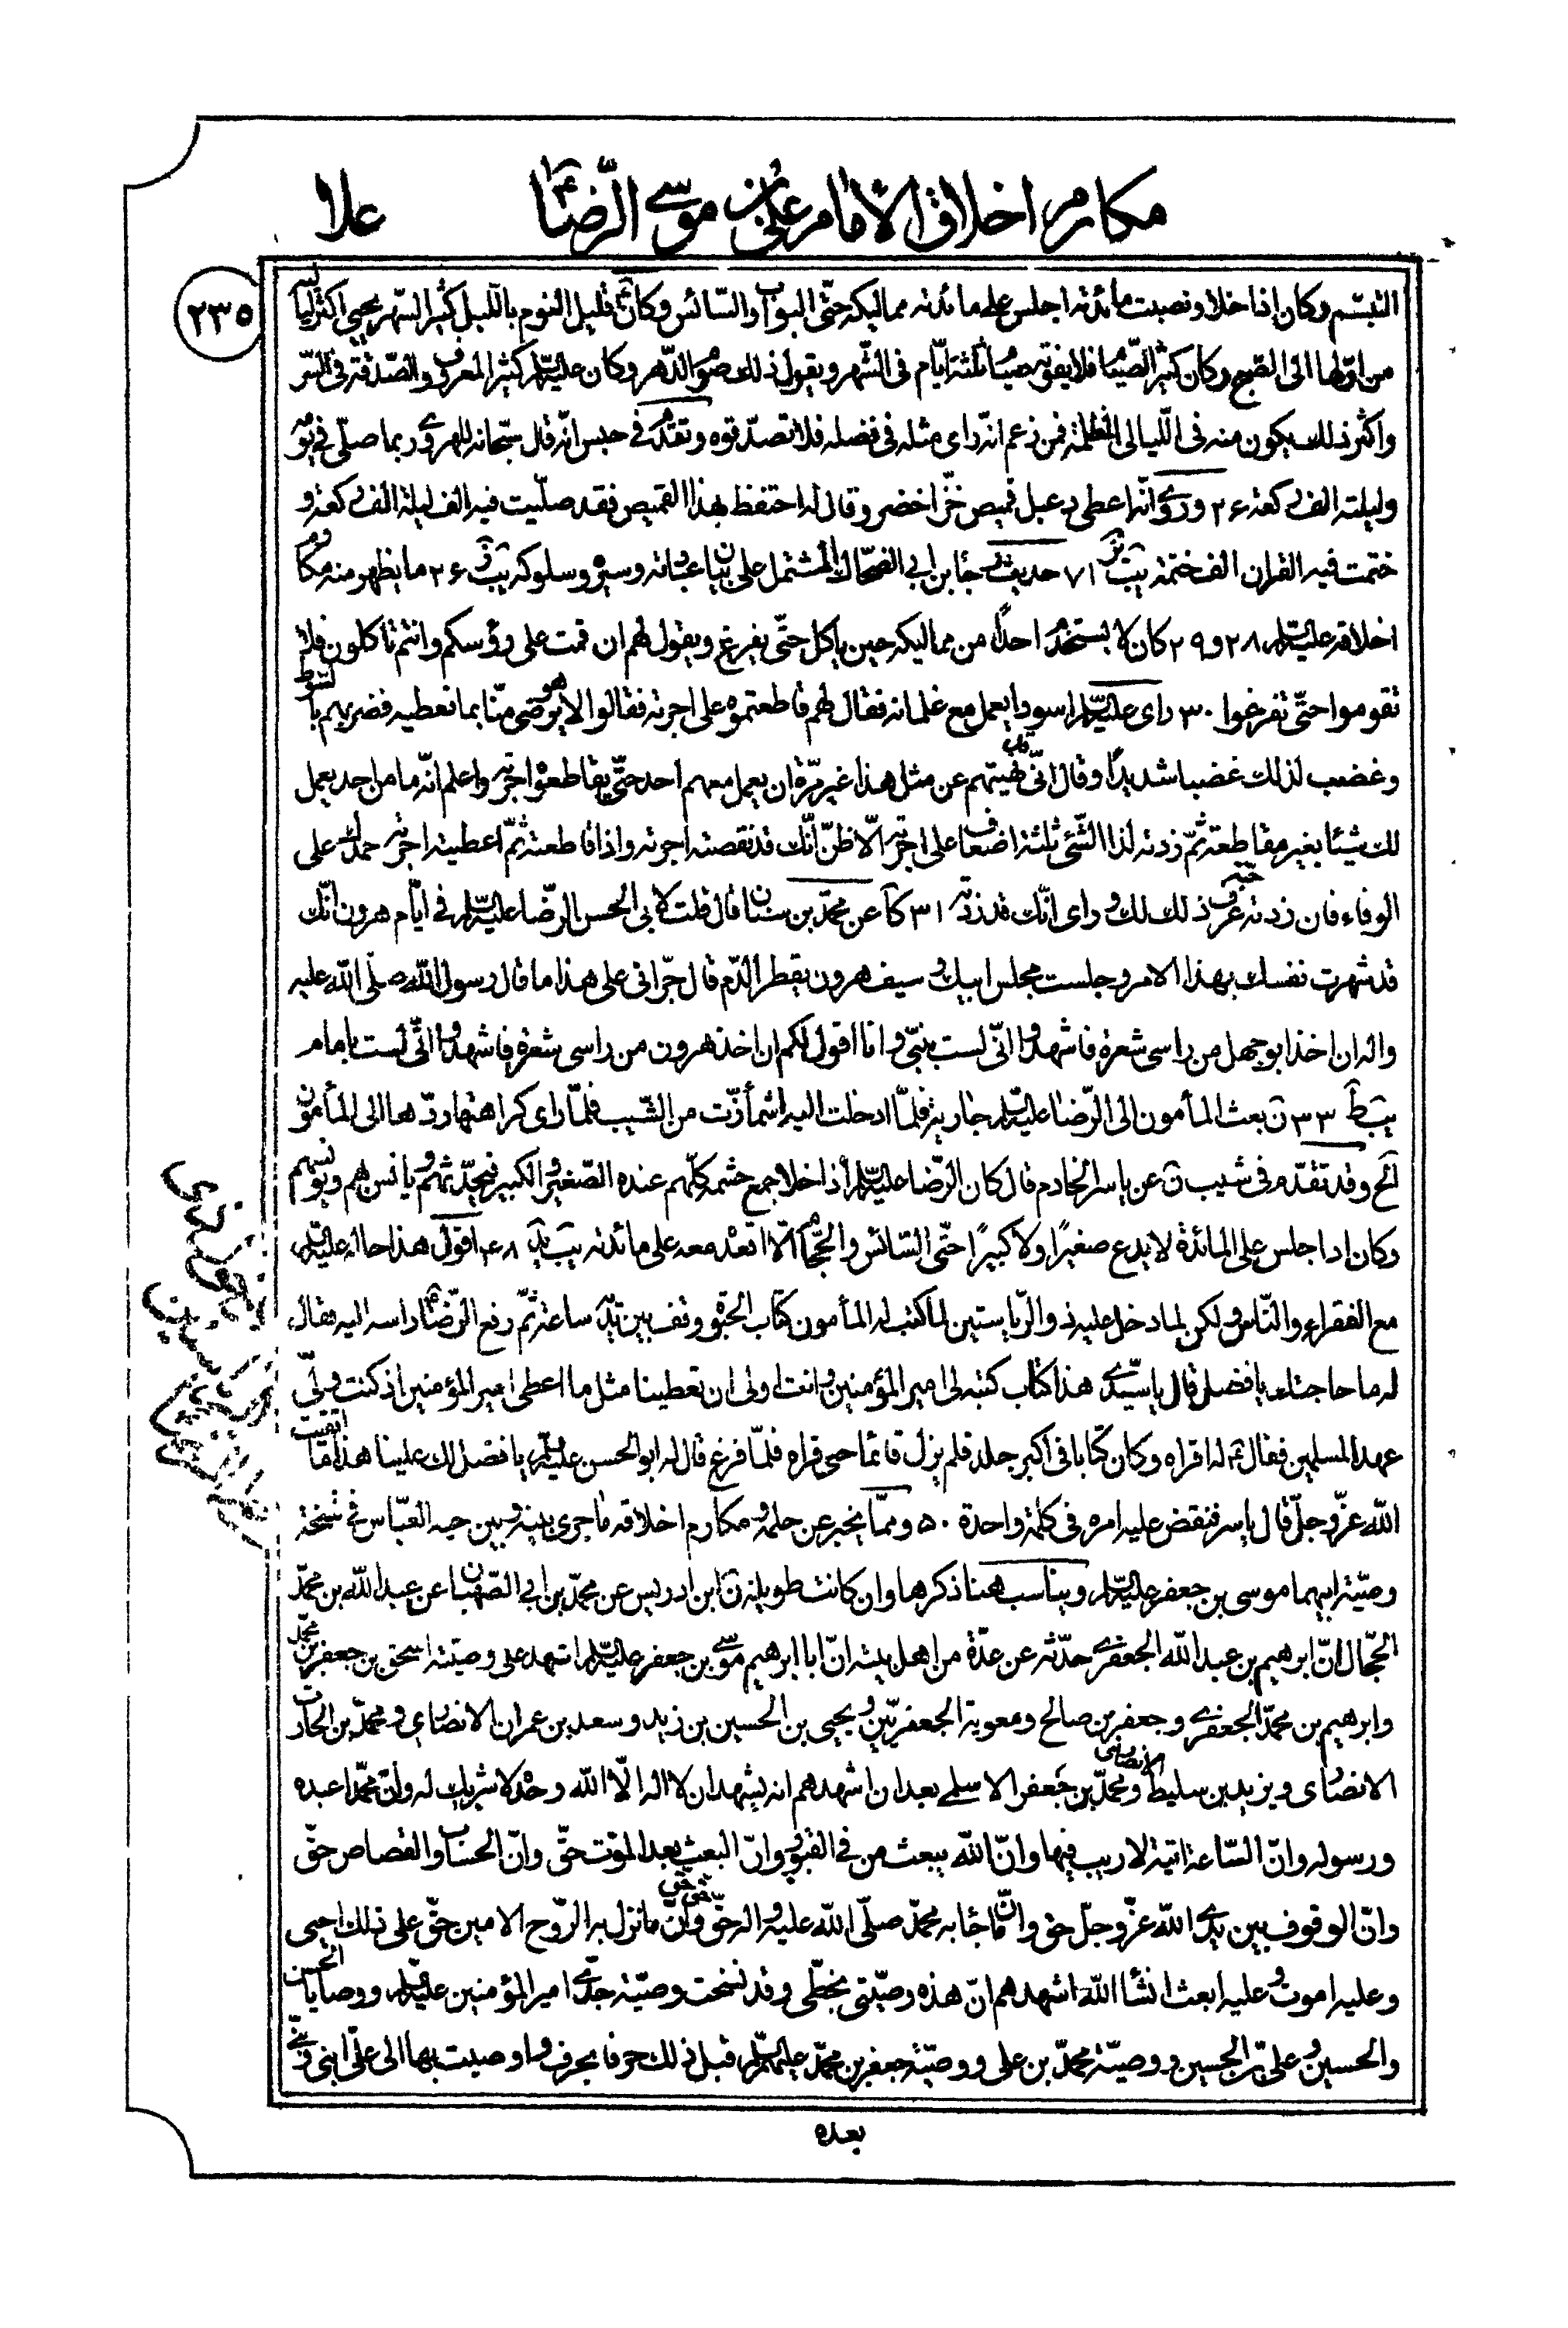 مكارم اخلاق الامام علي بن موسى الرّضا ع
علا
٢٣٥
التبسّم وكان اذا خلا ونصبت مائدته اجلس على مائدته مماليكه حتّى البواب والسّائس وكان ع قليل النوم بالليل كثير السّهر يحيي اكثر لياليه
من اوّلها الى الصّبح وكان كثير الصّيام فلا يفوته صيام ثلثة ايّام فى الشّهر ويقول ذلك صوم الدّهر وكان عليه السّلم كثير المعروف والصّدقة فى السّر
واكثر ذلك يكون منه فى اللّيالى المظلمة فمن زعم انّه راى مثله فى فضله فلا تصدّقوه وتقدّم فى حبس انّه قال سجّانه للهروي ربما صلّى في يومه
وليلته الف ركعة ٢٦ وروي انّه اعطى دعبل قميص خزّ اخضر وقال له احتفظ بهذا القميص فقد صلّيت فيه الف ليلة الف ركعة و
ختمت فيه القران الف ختمة يب ٧١ حديث رجاء بن ابي الضحّاك المشتمل على بيان عباداته وسيره وسلوكه يب ٢٦ ما يظهر منه مكارم
اخلاقه عليه السّلم ٢٨ و ٢٩ كان لا يستخدم احدًا من مماليكه حين ياكل حتّى يفرغ ويقول لهم ان قمت على رؤسكم وانتم تاكلون فلا
تقوموا حتّى تفرغوا ٣٠ راى عليه السّلم اسود يعمل مع غلمانه فقال لهم قاطعتموه على اجرته فقالوا لا هو يرضى منّا بما نعطيه فضربهم بالسّوط
وغضب لذلك غضبا شديدًا وقال انّى قد نهيتهم عن مثل هذا غير مرّة ان يعمل معهم احد حتّى يقاطعوه اجرته واعلم انّه ما من احد يعمل
لك شيئا بغير مقاطعة ثمّ زدته لذا الشّئ ثلثة اضعاف على اجرته الّا ظنّ انّك قد نقصته اجرته واذا قاطعته ثمّ اعطيته اجرته حمدك على
الوفاء فان زدته حبّة عرف ذلك لك وراى انّك قد زدته ٣١ كا عن محمّد بن سنان قال قلت لابى الحسن الرضا عليه السّلم فى ايّام هرون انّك
قد شهرت نفسك بهذا الامر وجلست مجلس ابيك وسيف هرون يقطر الدّم قال جرّانى على هذا ما قال رسول الله صلّى الله عليه
واله ان اخذ ابو جهل من راسى شعرة فاشهدوا انّى لست بنبيّ وانا اقول لكم ان اخذ هرون من راسى شعرة فاشهدوا انّى لست بامام
يب ط ٣٣ ن بعث المأمون الى الرّضا عليه السّلم جارية فلمّا ادخلت اليه اشمأزّت من الشّيب فلمّا راى كراهتها ردّها الى المأمون
الخ وقد تقدّم فى شيب ن عن ياسر الخادم قال كان الرّضا عليه السّلم اذا خلا جمع حشمه كلّهم عنده الصّغير والكبير فيحدّثهم ويانس بهم ويؤنسهم
وكان اذا جلس على المائدة لا يدع صغيرًا ولا كبيرًا حتّى السّائس والحجّام الّا اقعده معه على مائدته يب يد ٤٨ اقول هذا حاله عليه السّلم
مع الفقراء والنّاس ولكن لما دخل عليه ذو الرّياستين لما كتب له المأمون كتاب الحبوة وقف بين يديه ساعة ثمّ رفع الرّضا ع راسه اليه فقال
له ما حاجتك يا فضل قال يا سيّدي هذا كتاب كتبه لى امير المؤمنين وانت اولى ان تعطينا مثل ما اعطى امير المؤمنين اذ كنت وليّ
عهد المسلمين فقال ع له اقراه وكان كتابا فى اكبر جلد فلم يزل قائما حتى قراه فلمّا فرغ قال له ابو الحسن عليه السّلم يا فضل لك علينا هذا ما اتّقيت
الله عزّ وجلّ قال ياسر فنقض عليه امره فى كلمة واحدة ٥٠ وممّا يخبر عن حلمه ومكارم اخلاقه ما جرى بينه وبين العبّاس في نسخة
وصيّة ابيهما موسى بن جعفر عليه السّلم ويناسب هنا ذكرها وان كانت طويلة ن ابن ادريس عن محمّد بن ابي الصّهبان عن عبد الله بن محمّد
الحجّال انّ ابرهيم بن عبد الله الجعفري حدّثه عن عدّة من اهل بيته انّ ابا ابرهيم موسى بن جعفر عليه السّلم اشهد على وصيّته اسحق بن جعفر بن محمّد
وابرهيم بن محمّد الجعفري وجعفر بن صالح ومعوية الجعفريّين ويحيى بن الحسين بن زيد وسعد بن عمران الانصاري ومحمّد بن الحارث
الانصاى ويزيد بن سليط الانصارى ومحمّد بن جعفر الاسلمي بعد ان اشهدهم انه يشهد ان لا اله الّا الله وحده لا شريك له وانّ محمّدا عبده
ورسوله وانّ السّاعة اتية لا ريب فيها وانّ الله يبعث من في القبور وانّ البعث بعد الموت حقّ وانّ الحساب والقصاص حقّ
وانّ الوقوف بين يدي الله عزّ وجلّ حق وانّ ما جاء به محمّد صلّى الله عليه واله حقّ حق حق وانّ ما نزل به الرّوح الامين حقّ على ذلك احيى
وعليه اموت وعليه ابعث انشاء الله اشهدهم انّ هذه وصيّتى بخطّى وقد نسخت وصيّة جدّي امير المؤمنين عليه السّلم ووصايا الحسن
والحسين وعليّ بن الحسين ووصيّة محمّد بن على ووصيّة جعفر بن محمّد عليهم السّلم قبل ذلك حرفا بحرف واوصيت بها الى علىّ ابنى وبنىّ
بعده